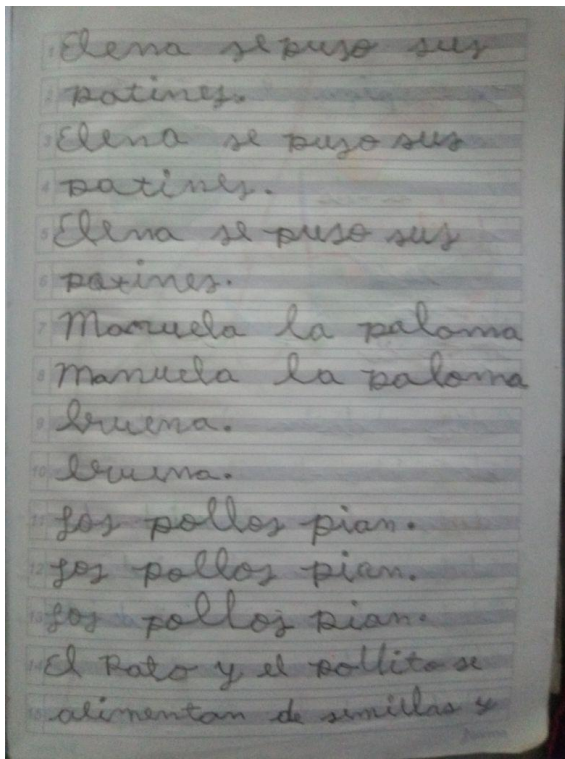 Elena se puso sus
patines.
Elena se puso sus
patines.
Elena se puso sus
patines.
Manuela la paloma
Manuela la paloma
buena.
buena.
Los pollos pian.
Los pollos pian.
Los pollos pian.
El Pato y el pollito se
alimentan de semillas y